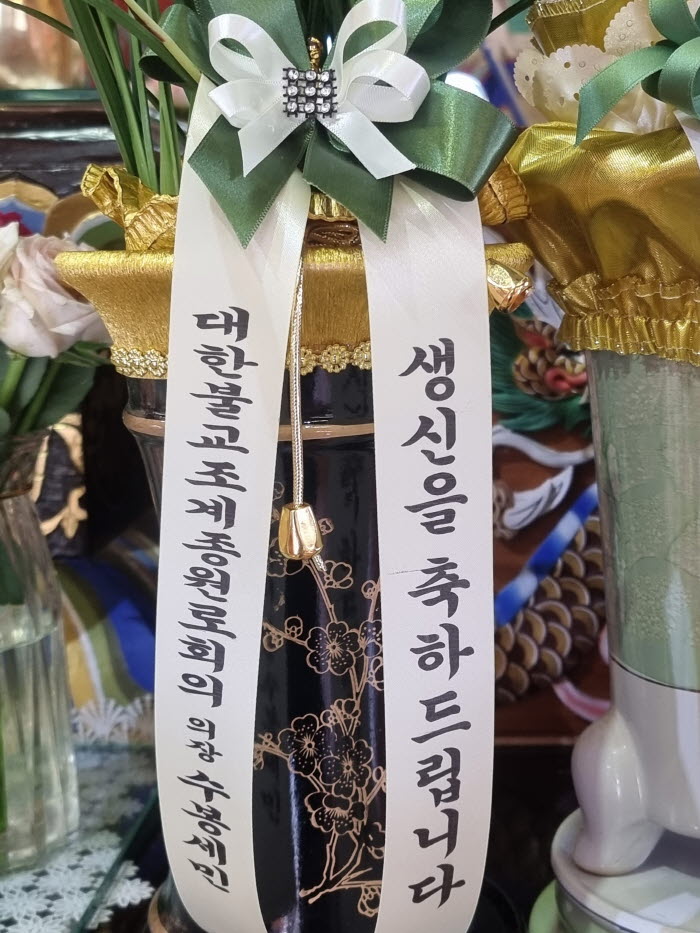 대한불교조계종원로회의 의장 수봉세민
생신을 축하드립니다